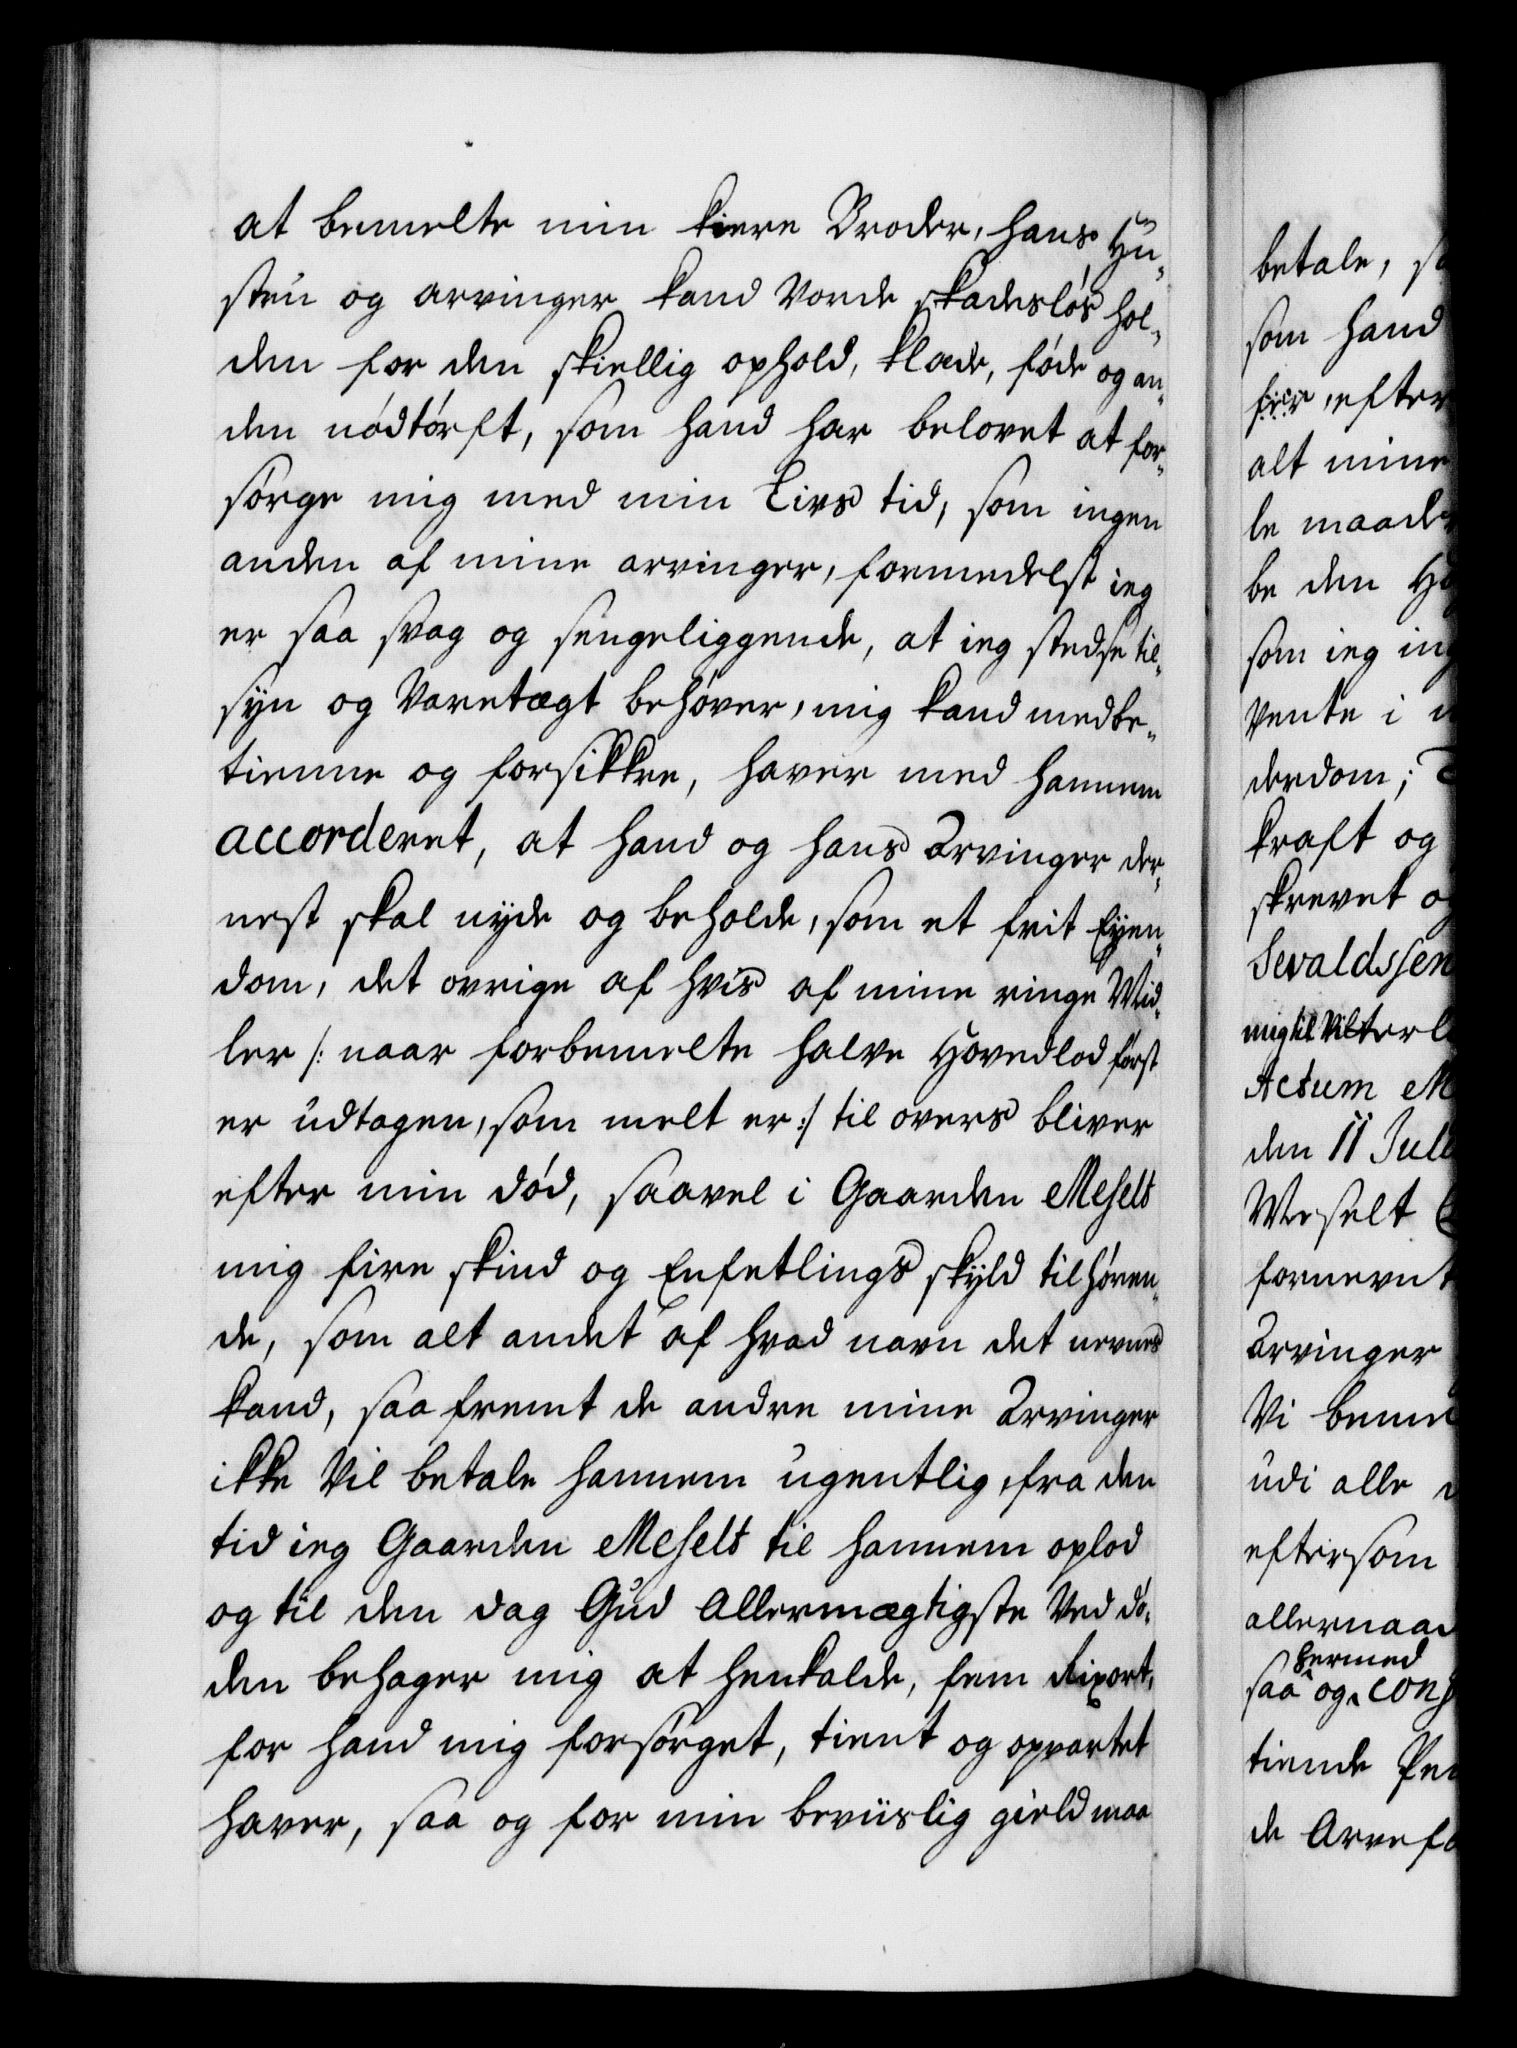 at bemelte min kiere Broder, hans Hu-
stru og arvinger kand vorde skadesløs hol-
den for den skiellig ophold, klæde, føde og an-
den nødtørft, som hand har belovet at for-
sørge mig med min Livs tid, som ingen
anden af mine arvinger, formedelst ieg
er saa svag og sengeliggende, at ieg stedse til-
syn og Varetægt behøver, mig kand med be-
tienne og forsikkre, haver med hannem
accorderet, at hand og hans Arvinger der-
nest skal nyde og beholde, som et frit Eyen-
dom, det ovrige af hvis af mine ringe Mid-
ler /: naar forbemelte halve Hovedlod først
er udtagen, som melt er :/ til overs bliver
efter min død, saavel i Gaarden Meselt
mig fire skind og Enfetlings skyld tilhøren-
de, som alt andet af hvad navn det nevnes
kand, saa fremt de andre mine Arvinger
ikke vil betale hannem ugentlig, fra den
tid ieg Gaarden Meselt til hannem oplod
og til den dag Gud Allermægtigste Ved dø-
den behager mig at henkalde, fem Rixort,
for hand mig forsørget, tient og opvartet
haver, saa og for min beviislig gield maa
betale, s
som hand
fier, efter
alt mine
le maade
be den H
som ieg in
vente i
derdom;
kraft og
skrevet o
Sevaldssen
mig til Vitterl
Actum M
den 11 Juli
Meselt
fornevnt
Arvinger
Vi beme
udi alle
eftersom
allernaa
hermed
saa og cons
tiende Pe
de Arvefo